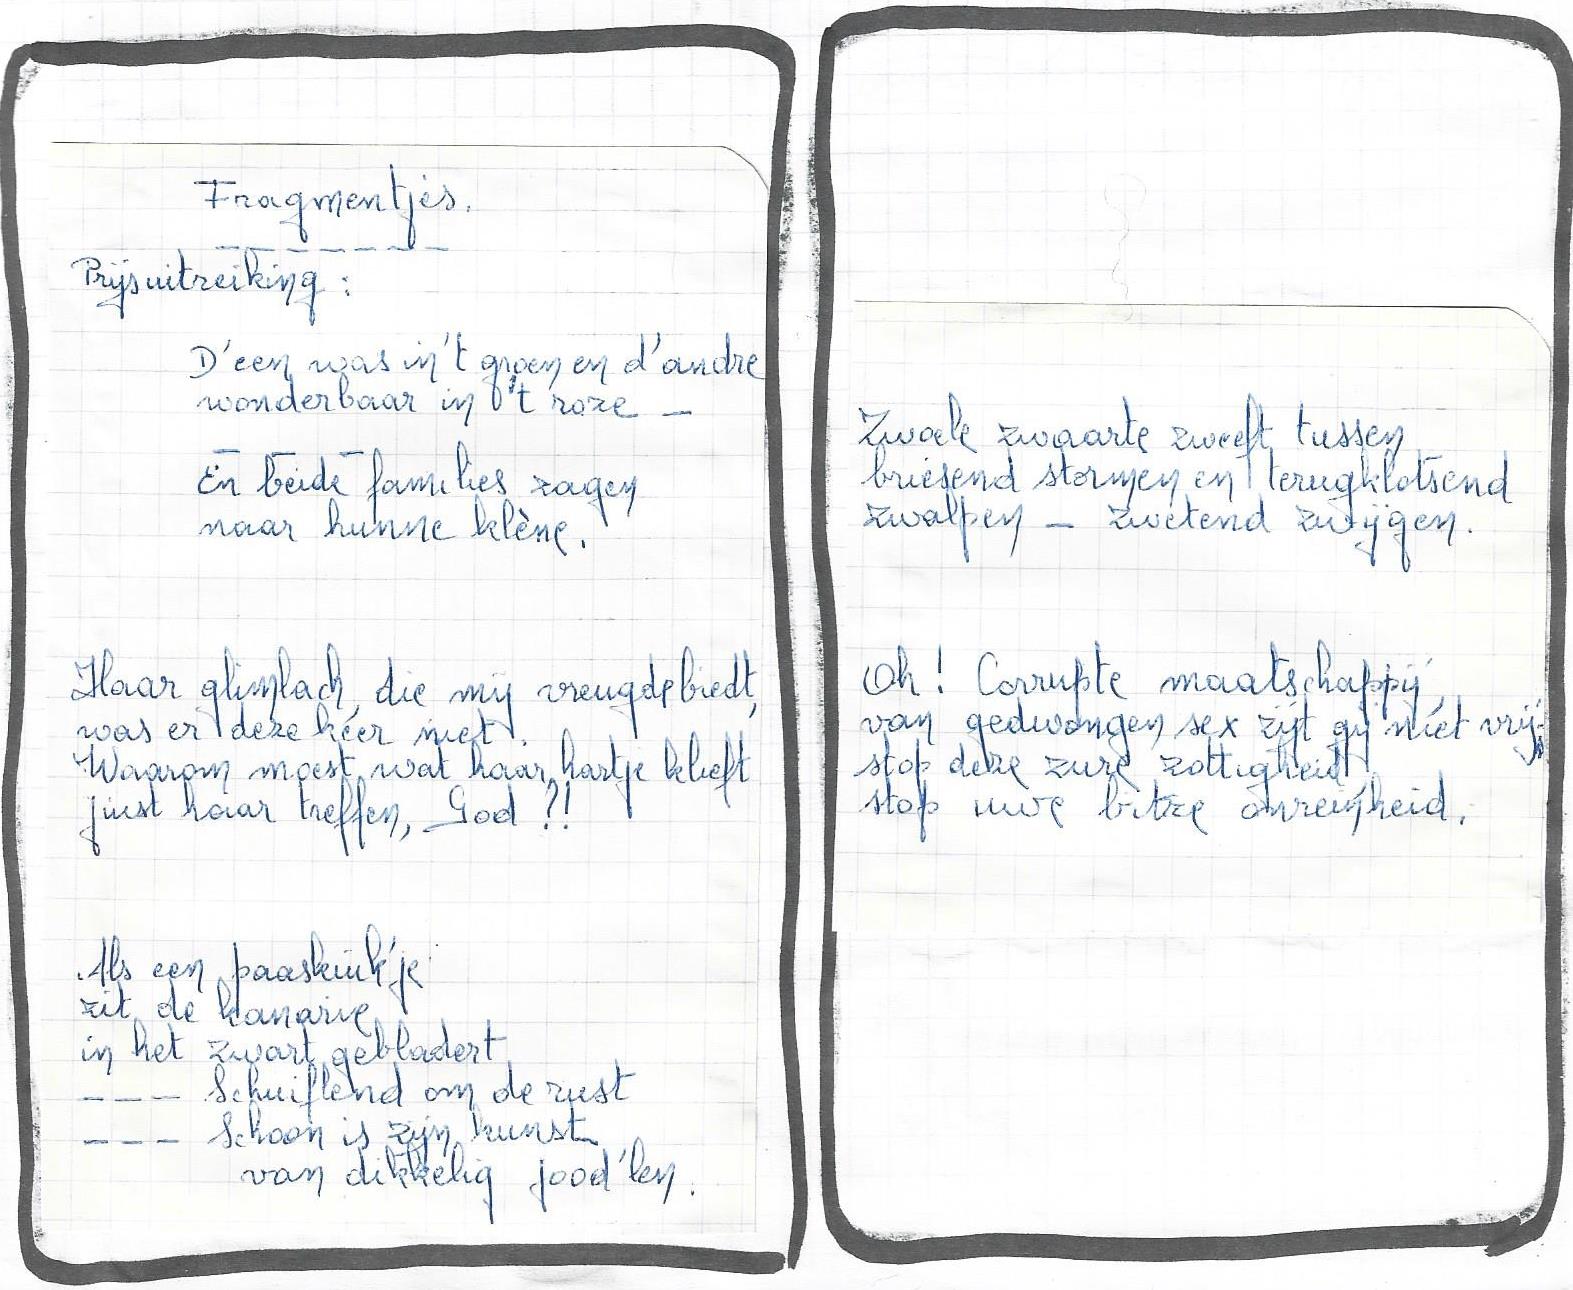 Fragmentjes.
Prijsuitreiking :
D'een was in 't groen en d'andre
wonderbaar in 't roze –
En beide families zagen
naar hunne klène.
Haar glimlach, die mij vreugde biedt,
was er deze keer niet.
Waarom moest wat haar hartje klieft
juist haar treffen, God ?!
Als een paaskuik'je
zit de kanarie
in het zwart gebladert
--- Schuiflend om de rust
--- Schoon is zijn kunst
van dikkelig jood'len.
Zwoele zwaarte zweeft tussen
briesend stormen en terugklotsend
zwalpen – zwetend zwijgen.
Oh ! Corrupte maatschappij,
van gedwongen sex zijt gij niet vrij;
stop deze zure zottigheid
stop uwe bitze onreinheid.